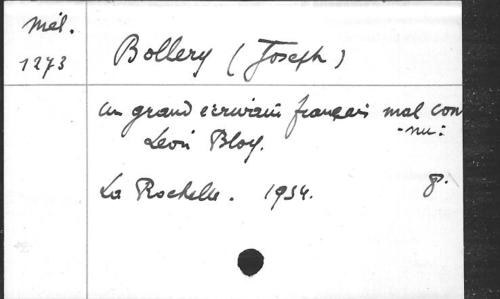 Mél.
1273
Bollery (Joseph)
Un grand écrivain français mal con
-nu:
Léon Bloy.
La Rochelle. 1934.
8.